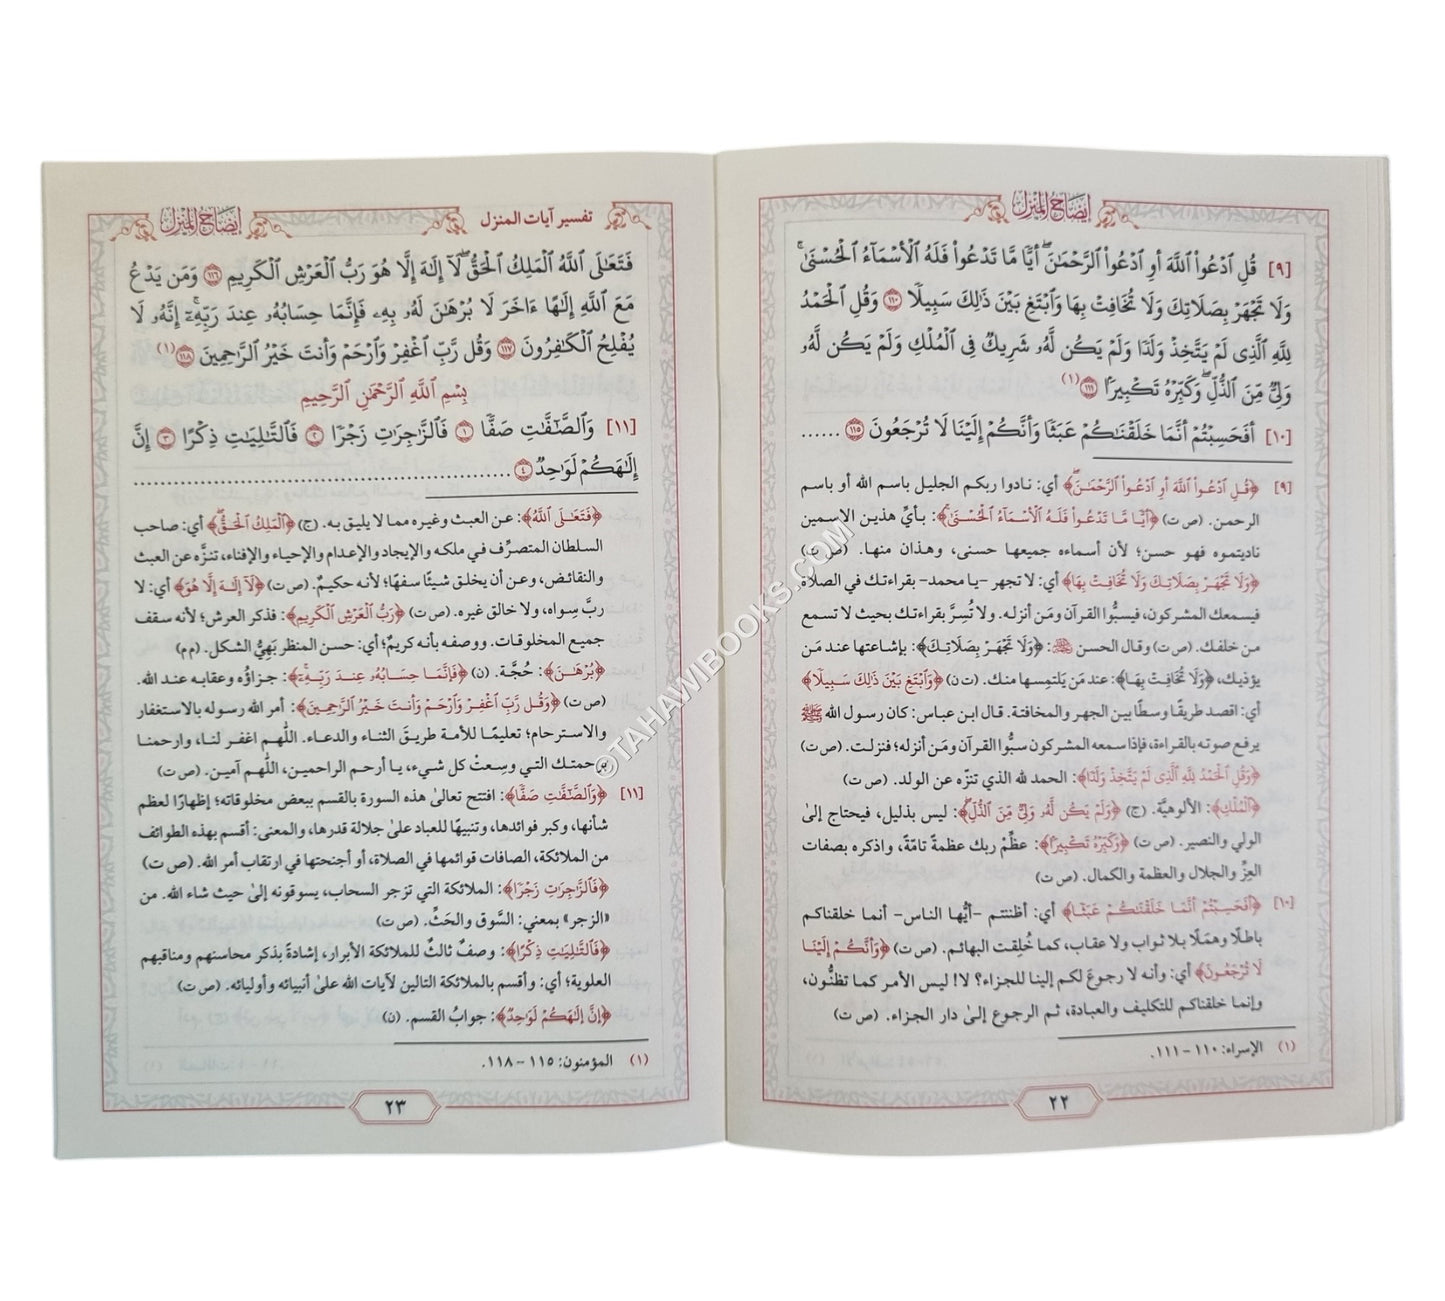 إيضاح المنزل
[٩] قُلِ ٱدْعُوا۟ ٱللَّهَ أَوِ ٱدْعُوا۟ ٱلرَّحْمَـٰنَ ۖ أَيًّا مَّا تَدْعُوا۟ فَلَهُ ٱلْأَسْمَآءُ ٱلْحُسْنَىٰ ۚ
وَلَا تَجْهَرْ بِصَلَاتِكَ وَلَا تُخَافِتْ بِهَا وَٱبْتَغِ بَيْنَ ذَٰلِكَ سَبِيلًا ١١٠ وَقُلِ ٱلْحَمْدُ
لِلَّهِ ٱلَّذِى لَمْ يَتَّخِذْ وَلَدًا وَلَمْ يَكُن لَّهُۥ شَرِيكٌ فِى ٱلْمُلْكِ وَلَمْ يَكُن لَّهُۥ
وَلِىٌّ مِّنَ ٱلذُّلِّ ۖ وَكَبِّرْهُ تَكْبِيرًا ١١١ (١)
[١٠] أَفَحَسِبْتُمْ أَنَّمَا خَلَقْنَـٰكُمْ عَبَثًا وَأَنَّكُمْ إِلَيْنَا لَا تُرْجَعُونَ ١١٥ ......
[٩] ﴿قُلِ ٱدْعُوا۟ ٱللَّهَ أَوِ ٱدْعُوا۟ ٱلرَّحْمَـٰنَ ۖ﴾ أي: نادوا ربكم الجليل باسم الله أو باسم
الرحمن. (ص ت) ﴿أَيًّا مَّا تَدْعُوا۟ فَلَهُ ٱلْأَسْمَآءُ ٱلْحُسْنَىٰ ۚ﴾: بأيِّ هذين الاسمين
ناديتموه فهو حسن؛ لأن أسماءه جميعها حسنى، وهذان منها. (ص ت)
﴿وَلَا تَجْهَرْ بِصَلَاتِكَ وَلَا تُخَافِتْ بِهَا﴾ أي: لا تجهر -يا محمد- بقراءتك في الصلاة
فيسمعك المشركون، فيسبُّوا القرآن ومَن أنزله. ولا تُسِرَّ بقراءتك بحيث لا تسمع
من خلفك. (ص ت) وقال الحسن: ﴿وَلَا تَجْهَرْ بِصَلَاتِكَ﴾: بإشاعتها عند مَن
يؤذيك، ﴿وَلَا تُخَافِتْ بِهَا﴾: عند مَن يَلتمِسها منك. (ت ن) ﴿وَٱبْتَغِ بَيْنَ ذَٰلِكَ سَبِيلًا﴾
أي: اقصد طريقًا وسطًا بين الجهر والمخافتة. قال ابن عباس: كان رسول الله ﷺ
يرفع صوته بالقراءة، فإذا سمعه المشركون سبُّوا القرآن ومَن أنزله؛ فنزلت. (ص ت)
﴿وَقُلِ ٱلْحَمْدُ لِلَّهِ ٱلَّذِى لَمْ يَتَّخِذْ وَلَدًا﴾: الحمد لله الذي تنزّه عن الولد. (ص ت)
﴿ٱلْمُلْكِ﴾: الألوهيَّة. (ج) ﴿وَلَمْ يَكُن لَّهُۥ وَلِىٌّ مِّنَ ٱلذُّلِّ ۖ﴾: ليس بذليل، فيحتاج إلىٰ
الولي والنصير. (ص ت) ﴿وَكَبِّرْهُ تَكْبِيرًا﴾: عظِّمْ ربك عظمةً تامّةً، واذكره بصفات
العِزِّ والجلال والعظمة والكمال. (ص ت)
[١٠] ﴿أَفَحَسِبْتُمْ أَنَّمَا خَلَقْنَـٰكُمْ عَبَثًا﴾ أي: أظننتم -أيُّها الناس- أنما خلقناكم
باطلًا وهملًا بلا ثواب ولا عقاب، كما خُلِقت البهائم. (ص ت) ﴿وَأَنَّكُمْ إِلَيْنَا
لَا تُرْجَعُونَ﴾ أي: وأنه لا رجوعَ لكم إلينا للجزاء؟ لا! ليس الأمر كما تظنُّون،
وإنما خلقناكم للتكليف والعبادة، ثم الرجوع إلىٰ دار الجزاء. (ص ت)
(١) الإسراء: ١١٠ - ١١١.
٢٢
تفسير آيات المنزل
إيضاح المنزل
فَتَعَـٰلَى ٱللَّهُ ٱلْمَلِكُ ٱلْحَقُّ ۖ لَآ إِلَـٰهَ إِلَّا هُوَ رَبُّ ٱلْعَرْشِ ٱلْكَرِيمِ ١١٦ وَمَن يَدْعُ
مَعَ ٱللَّهِ إِلَـٰهًا ءَاخَرَ لَا بُرْهَـٰنَ لَهُۥ بِهِۦ فَإِنَّمَا حِسَابُهُۥ عِندَ رَبِّهِۦٓ ۚ إِنَّهُۥ لَا
يُفْلِحُ ٱلْكَـٰفِرُونَ ١١٧ وَقُل رَّبِّ ٱغْفِرْ وَٱرْحَمْ وَأَنتَ خَيْرُ ٱلرَّٰحِمِينَ ١١٨ (١)
بِسْمِ ٱللَّهِ ٱلرَّحْمَـٰنِ ٱلرَّحِيمِ
[١١] وَٱلصَّـٰٓفَّـٰتِ صَفًّا ١ فَٱلزَّٰجِرَٰتِ زَجْرًا ٢ فَٱلتَّـٰلِيَـٰتِ ذِكْرًا ٣ إِنَّ
إِلَـٰهَكُمْ لَوَٰحِدٌ ٤ ......................................................
﴿فَتَعَـٰلَى ٱللَّهُ﴾: عن العبث وغيره مما لا يليق به. (ج) ﴿ٱلْمَلِكُ ٱلْحَقُّ ۖ﴾ أي: صاحب
السلطان المتصرِّف في ملكه والإيجاد والإعدام والإحياء والإفناء، تنزَّه عن العبث
والنقائض، وعن أن يخلق شيئًا سفهًا؛ لأنه حكيمٌ. (ص ت) ﴿لَآ إِلَـٰهَ إِلَّا هُوَ﴾ أي: لا
ربَّ سِواه، ولا خالق غيره. (ص ت) ﴿رَبُّ ٱلْعَرْشِ ٱلْكَرِيمِ﴾: فذكر العرش؛ لأنه سقف
جميع المخلوقات. ووصفه بأنه كريمٌ؛ أي: حسن المنظر بَهِيُّ الشكل. (م م)
﴿بُرْهَـٰنَ﴾: حُجَّة. (ن) ﴿فَإِنَّمَا حِسَابُهُۥ عِندَ رَبِّهِۦٓ ۚ﴾: جزاؤُه وعقابه عند الله.
(ص ت) ﴿وَقُل رَّبِّ ٱغْفِرْ وَٱرْحَمْ وَأَنتَ خَيْرُ ٱلرَّٰحِمِينَ﴾: أمر الله رسوله بالاستغفار
والاسترحام؛ تعليمًا للأمة طريقَ الثناء والدعاء. اللّٰهم اغفر لنا، وارحمنا
برحمتك التي وسِعتْ كل شيء، يا أرحم الراحمين، اللّٰهم آمين. (ص ت)
[١١] ﴿وَٱلصَّـٰٓفَّـٰتِ صَفًّا﴾: افتتح تعالىٰ هذه السورة بالقسم ببعض مخلوقاته؛ إظهارًا لعظم
شأنها، وكبر فوائدها، وتنبيهًا للعباد علىٰ جلالة قدرها، والمعنى: أقسم بهذه الطوائف
من الملائكة، الصافات قوائمها في الصلاة، أو أجنحتها في ارتقاب أمر الله. (ص ت)
﴿فَٱلزَّٰجِرَٰتِ زَجْرًا﴾: الملائكة التي تزجر السحاب، يسوقونه إلىٰ حيث شاء الله. من
«الزجر» بمعني: السَّوق والحَثِّ. (ص ت)
﴿فَٱلتَّـٰلِيَـٰتِ ذِكْرًا﴾: وصفٌ ثالثٌ للملائكة الأبرار، إشادةً بذكر محاسنهم ومناقبهم
العلوية؛ أي: وأقسم بالملائكة التالين لآيات الله علىٰ أنبيائه وأوليائه. (ص ت)
﴿إِنَّ إِلَـٰهَكُمْ لَوَٰحِدٌ﴾: جوابُ القسم. (ن)
(١) المؤمنون: ١١٥ - ١١٨.
٢٣
©TAHAWIBOOKS.COM